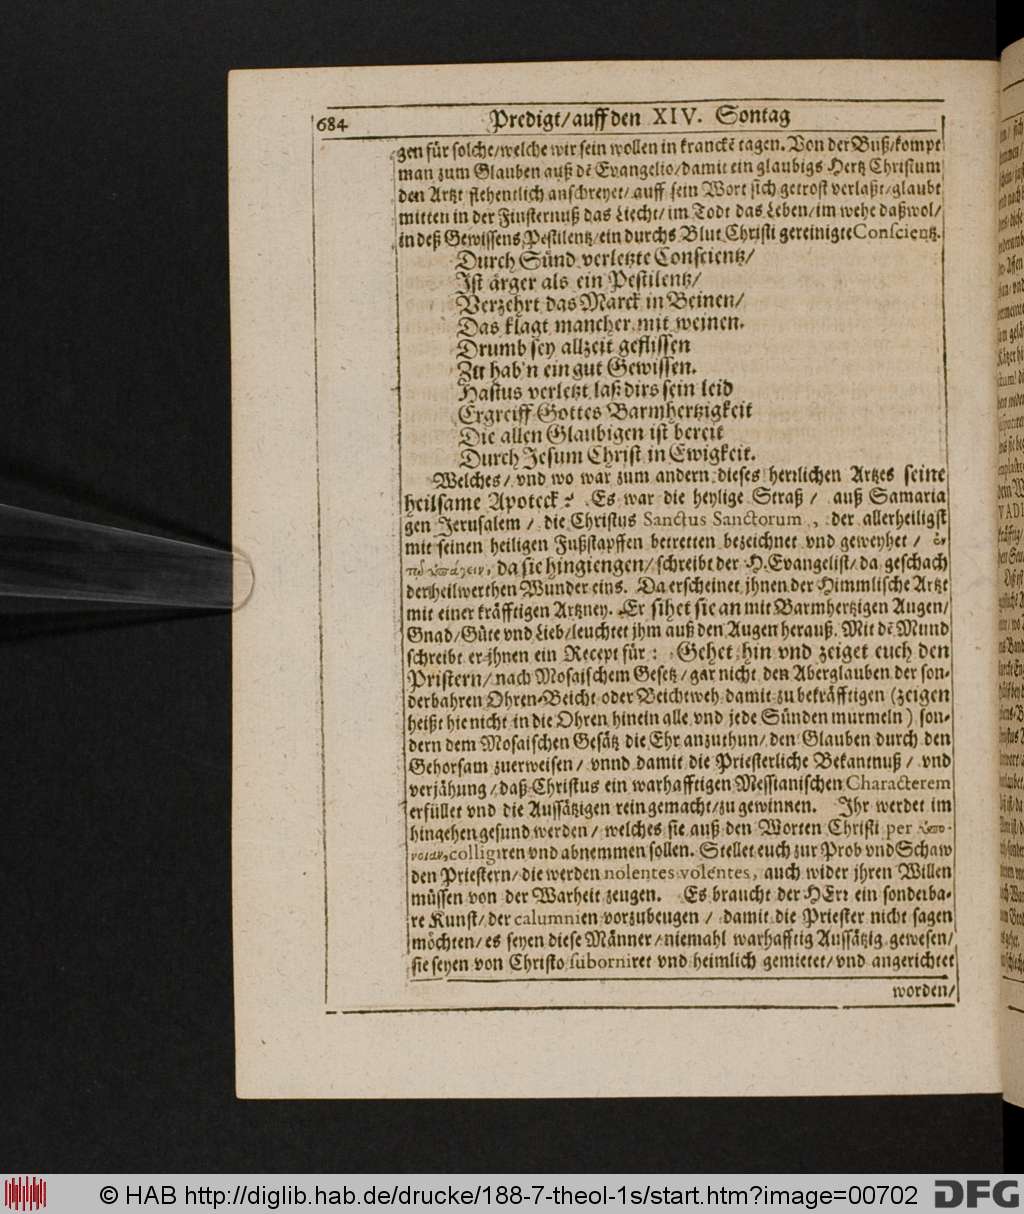 684
Predigt/ auff den XIV. Sontag
gen für solche/ welche wir sein wollen in kranckē tagen. Von der Buß/ kompt
man zum Glauben auß dē Evangelio/ damit ein glaubigs Hertz Christum
den Artzt flehentlich anschreyet/ auff sein Wort sich getrost verlaßt/ glaubt
mitten in der Finsternuß das Liecht/ im Todt das Leben/ im wehe daß wol/
in deß Gewissens Pestilentz/ ein durchs Blut Christi gereinigte Conscientz.
Durch Sünd verletzte Conscientz/
Ist ärger als ein Pestilentz/
Verzehrt das Marck in Beinen/
Das klagt mancher mit weinen.
Drumb sey allzeit geflissen
Zu hab'n ein gut Gewissen.
Hastus verletzt laß dirs sein leid
Ergreiff Gottes Barmhertzigkeit
Die allen Glaubigen ist bereit
Durch Jesum Christ in Ewigkeit.
Welches/ vnd wo war zum andern dieses herrlichen Artzes seine
heilsame Apoteck? Es war die heylige Straß/ auß Samaria
gen Jerusalem/ die Christus Sanctus Sanctorum, der allerheiligst
mit seinen heiligen Fußstapffen betretten bezeichnet vnd geweyhet/ ἐν
τῷ ὑπάγειν, da sie hingiengen/ schreibt der H. Evangelist/ da geschach
der heilwerthen Wunder eins. Da erscheinet jhnen der Himmlische Artzt
mit einer kräfftigen Artzney. Er sihet sie an mit Barmhertzigen Augen/
Gnad/ Güte vnd Lieb/ leuchtet jhm auß den Augen herauß. Mit dē Mund
schreibt er jhnen ein Recept für: Gehet hin vnd zeiget euch den
Pristern/ nach Mosaischem Gesetz/ gar nicht den Aberglauben der son-
derbahren Ohren-Beicht oder Beichtweh damit zu bekräfftigen (zeigen
heißt hie nicht in die Ohren hinein alle vnd jede Sünden murmeln) son-
dern dem Mosaischen Gesätz die Ehr anzuthun/ den Glauben durch den
Gehorsam zuerweisen/ vnnd damit die Priesterliche Bekantnuß/ vnd
verjähung/ daß Christus ein warhafftigen Messianischen Characterem
erfüllet vnd die Aussätzigen rein gemacht/ zu gewinnen. Ihr werdet im
hingehen gesund werden/ welches sie auß den Worten Christi per ὑπο-
νοιαν, colligiren vnd abnemmen sollen. Stellet euch zur Prob vnd Schaw
den Priestern/ die werden nolentes volentes, auch wider jhren Willen
müssen von der Warheit zeugen. Es braucht der HErr ein sonderba-
re Kunst/ der calumnien vorzubeugen/ damit die Priester nicht sagen
möchten/ es seyen diese Männer/ niemahl warhafftig Aussätzig gewesen/
sie seyen von Christo suborniret vnd heimlich gemietet/ vnd angerichtet
worden/
© HAB http://diglib.hab.de/drucke/188-7-theol-1s/start.htm?image=00702
DFG